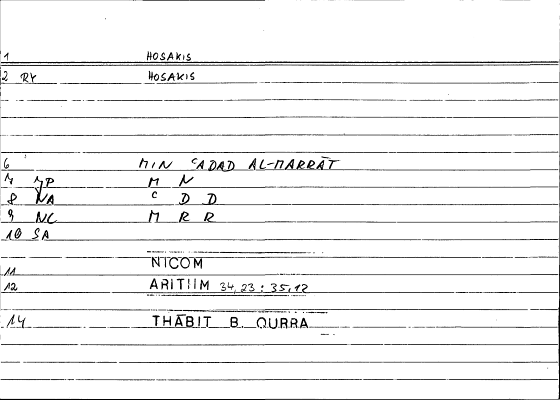 1 HOSAKIS
2 RY HOSAKIS
6 MIN ʿADAD AL-MARRĀT
7 JP M N
8 NA ʿ D D
9 NC M R R
10 SA
11 NICOM
12 ARITIIM 34,23 : 35,12
14 THĀBIT B. QURRA